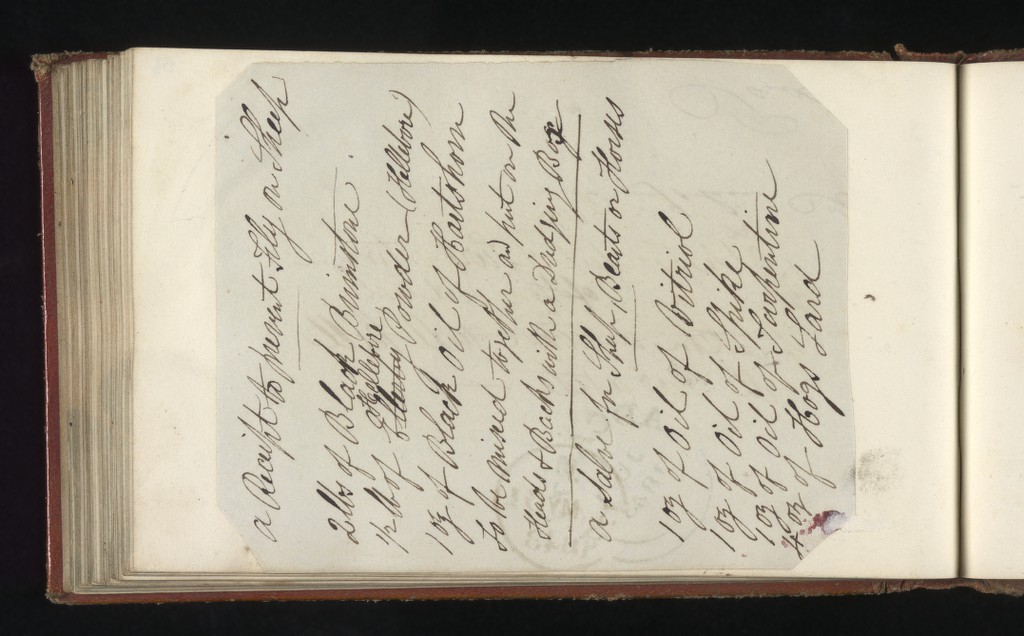 a Receipt to prevent Fly on Sheep
2 lbs of Black Brimstone
Helebore
1/2 lb of Powder (Hellebore)
1 oz of Black Oil of Hartshorn
to be mixed together and put on the
Heads & Backs with a Dredging Box
a Salve for Sheep, Beasts or Horses
1 oz of Oil of Vitriol
1 oz of Oil of Spike
1 oz of Oil of Turpentine
4 oz of Hogs Lard